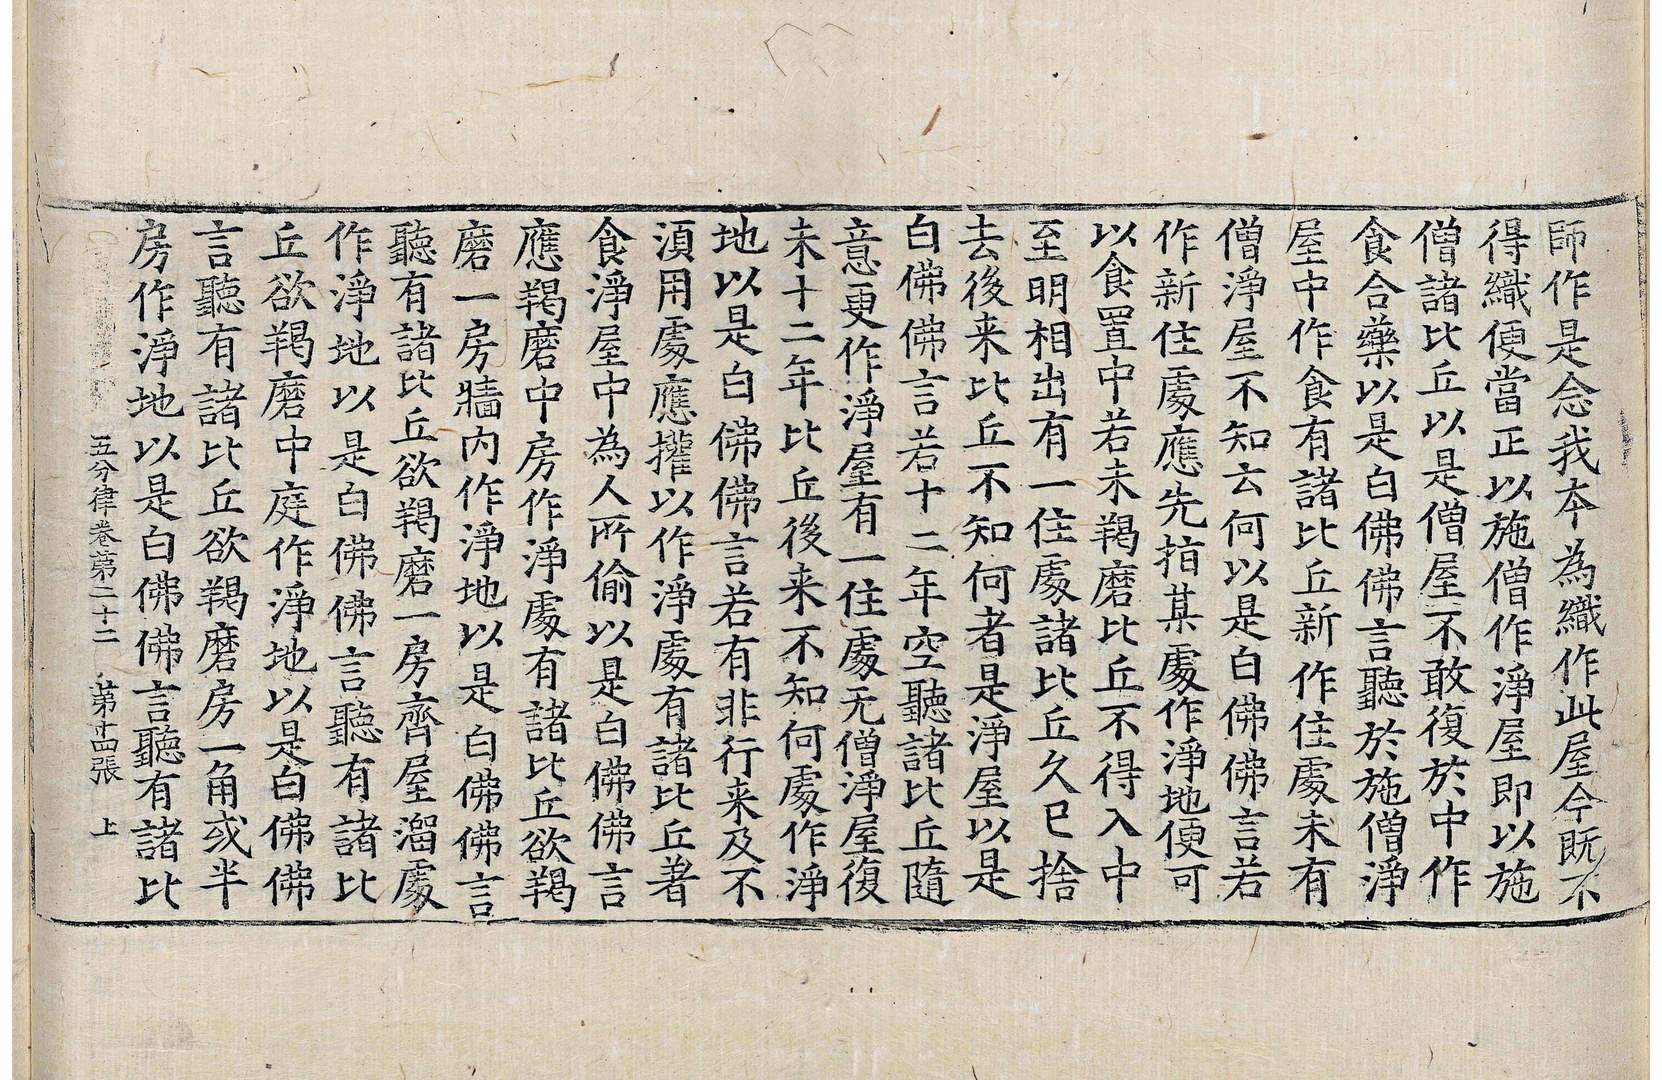 師作是念我本為織作此屋今既不
得織便當正以施僧作淨屋即以施
僧諸比丘以是僧屋不敢復於中作
食合藥以是白佛佛言聽於施僧淨
屋中作食有諸比丘新作住處未有
僧淨屋不知云何以是白佛佛言若
作新住處應先指某處作淨地便可
以食置中若未羯磨比丘不得入中
至明相出有一住處諸比丘久已捨
去後来比丘不知何者是淨屋以是
白佛佛言若十二年空聽諸比丘隨
意更作淨屋有一住處无僧淨屋復
未十二年比丘後来不知何處作淨
地以是白佛佛言若有非行来及不
湏用處應攉以作淨處有諸比丘著
食淨屋中為人所偷以是白佛佛言
應羯磨中房作淨處有諸比丘欲羯
磨一房牆内作淨地以是白佛佛言
聽有諸比丘欲羯磨一房齊屋溜處
作淨地以是白佛佛言聽有諸比
丘欲羯磨中庭作淨地以是白佛佛
言聽有諸比丘欲羯磨房一角或半
房作淨地以是白佛佛言聽有諸比
五分律卷第二十二 第十四張 上